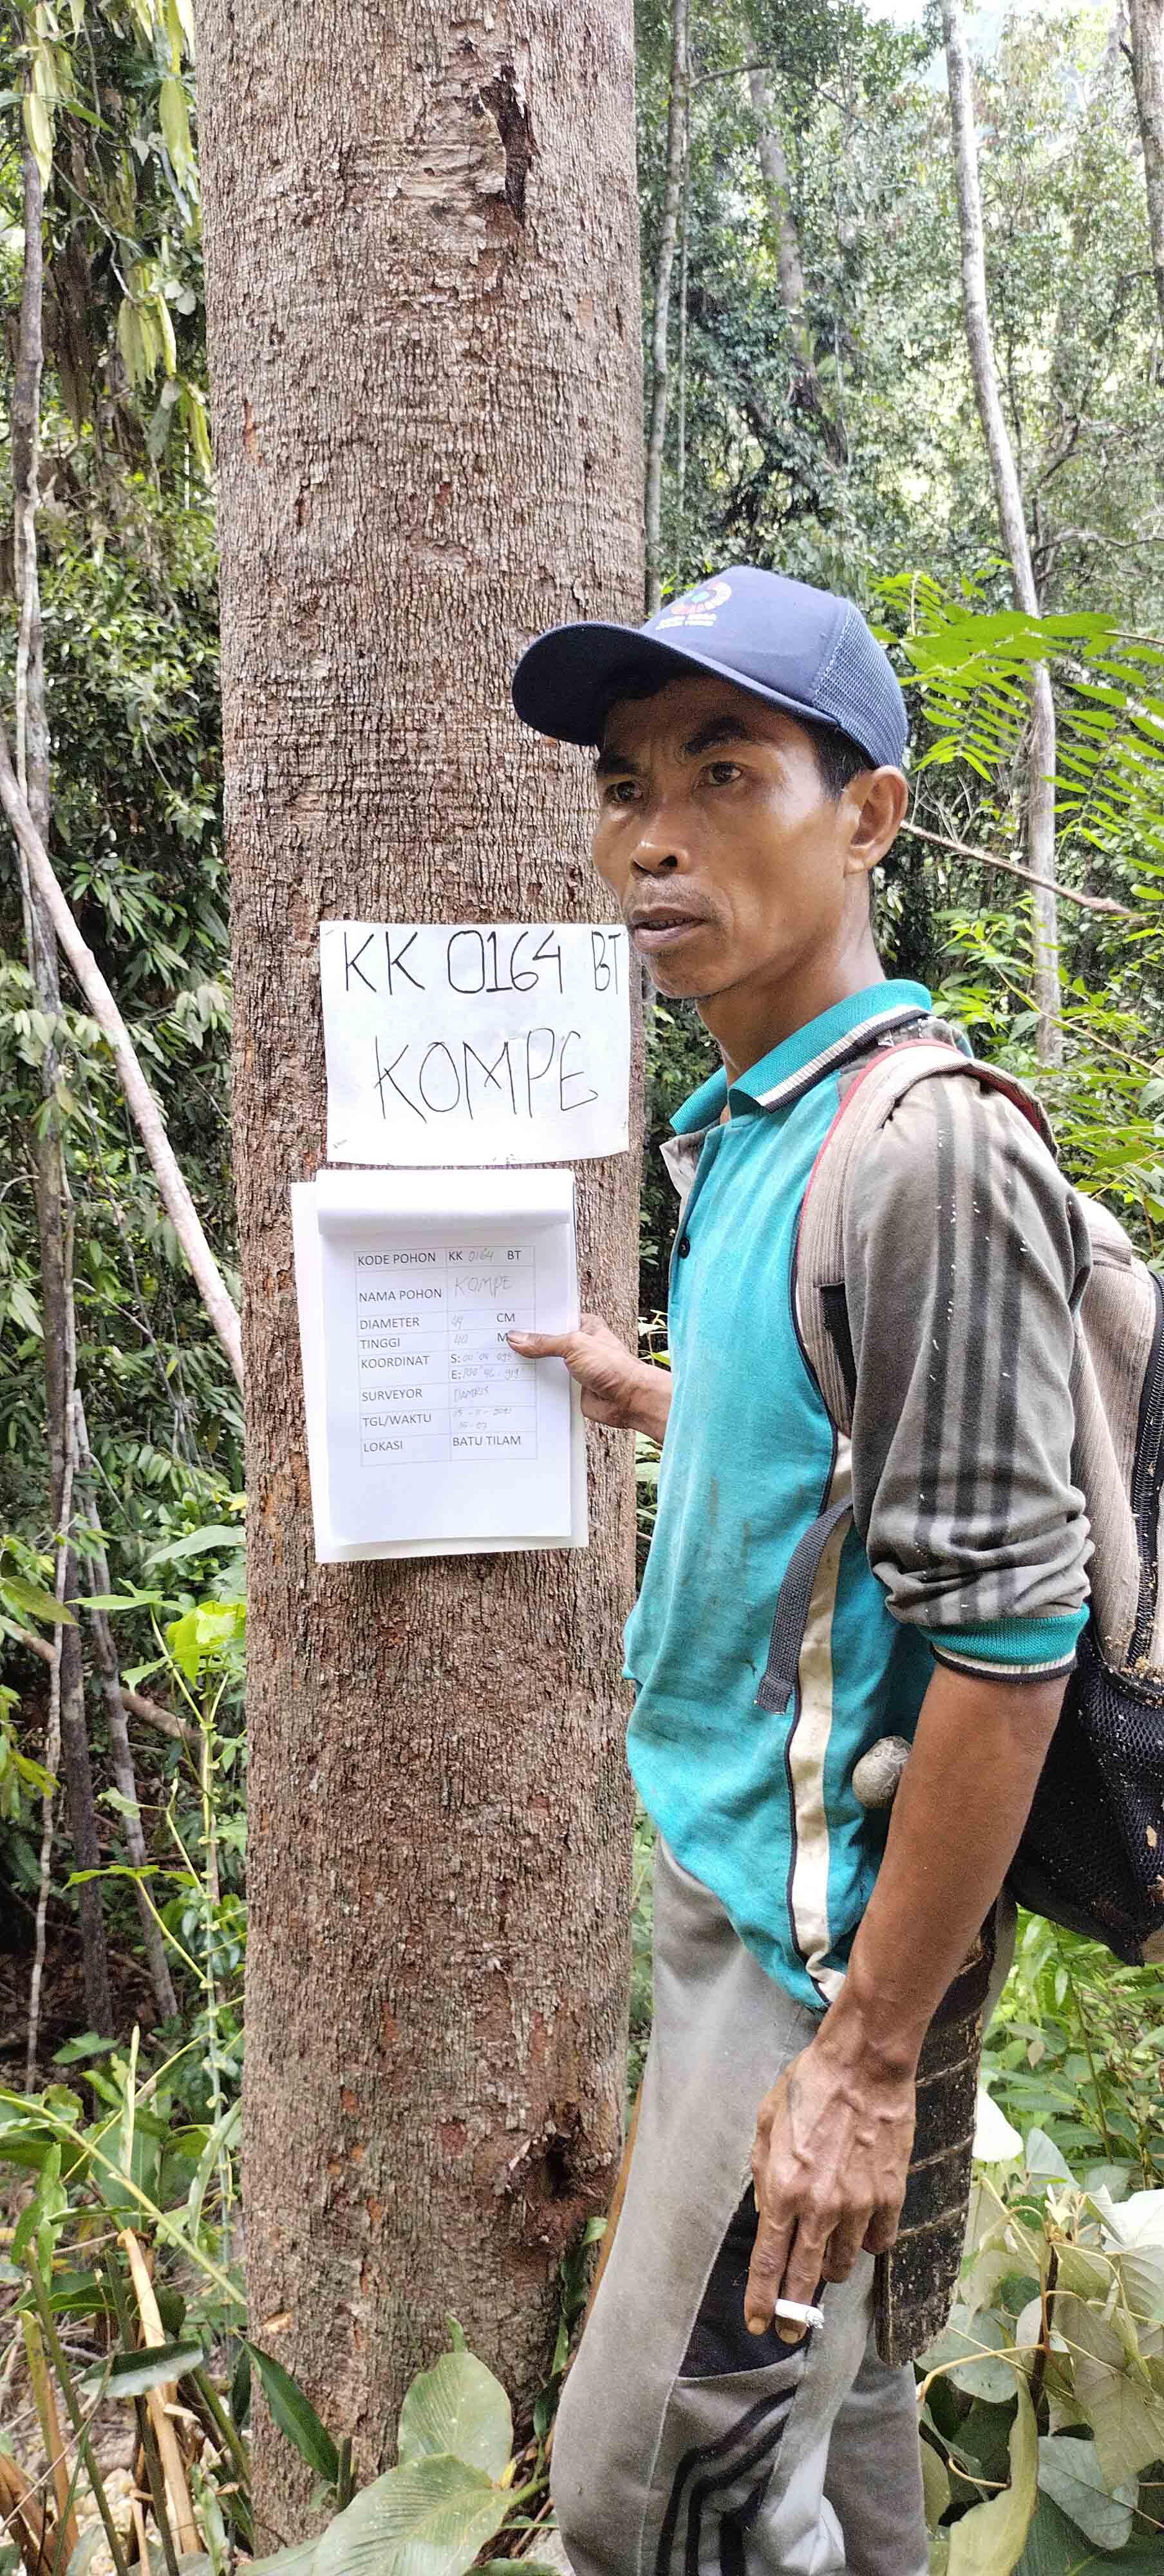 KK 0164 BT
KOMPE
KODE POHON KK 0164 BT
NAMA POHON KOMPE
DIAMETER CM
TINGGI 40 M
KOORDINAT S:
E:
SURVEYOR
TGL/WAKTU
LOKASI BATU TILAM